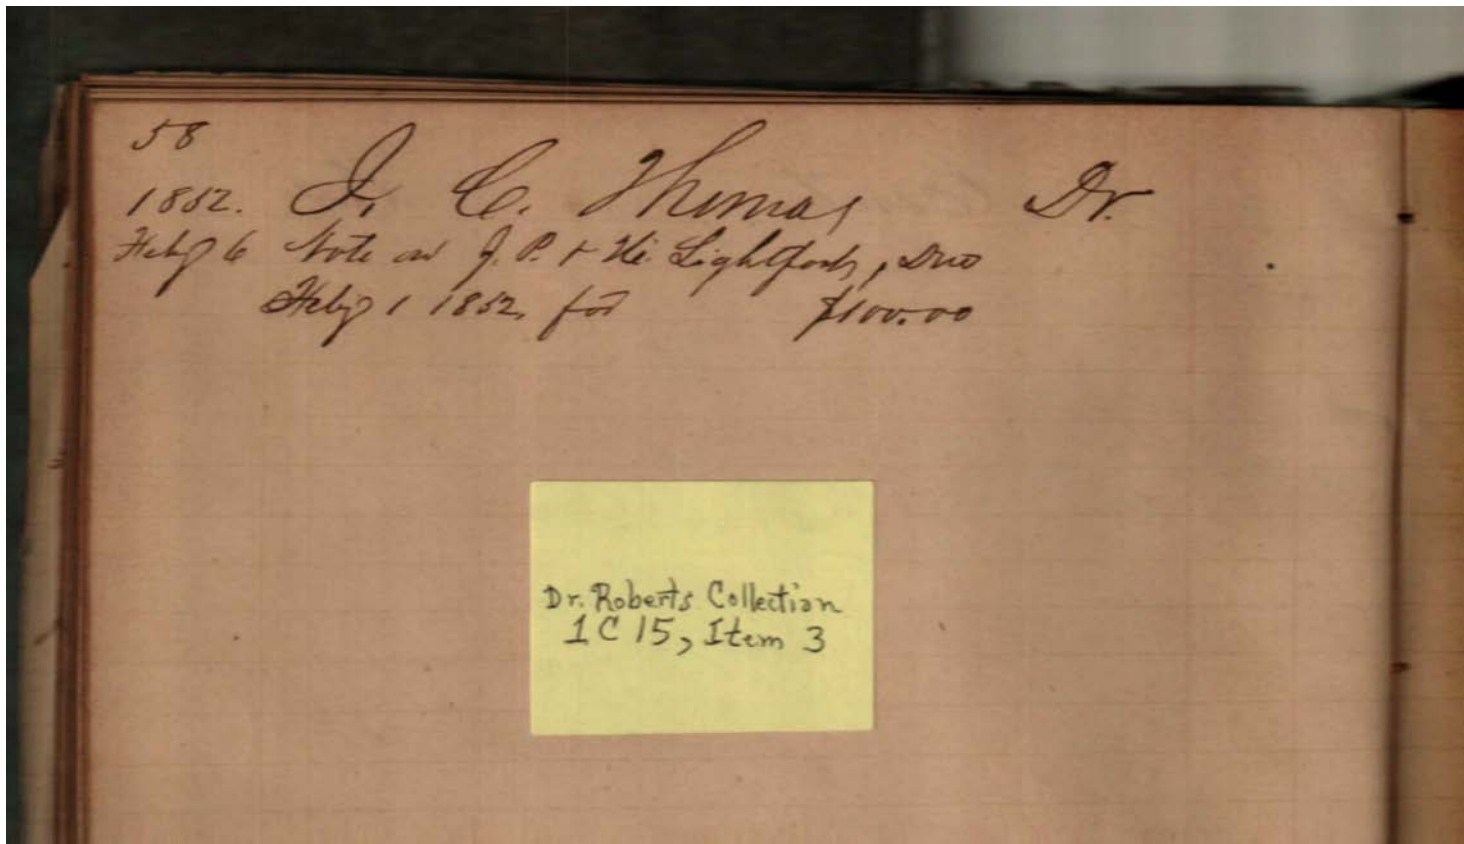 58
1852. J. C. Thomas Dr.
Feby 6 Note on J. P. & Lightfoot, Due
Feby 1 1852, for $100.00
Dr. Roberts Collection
1 C 15, Item 3